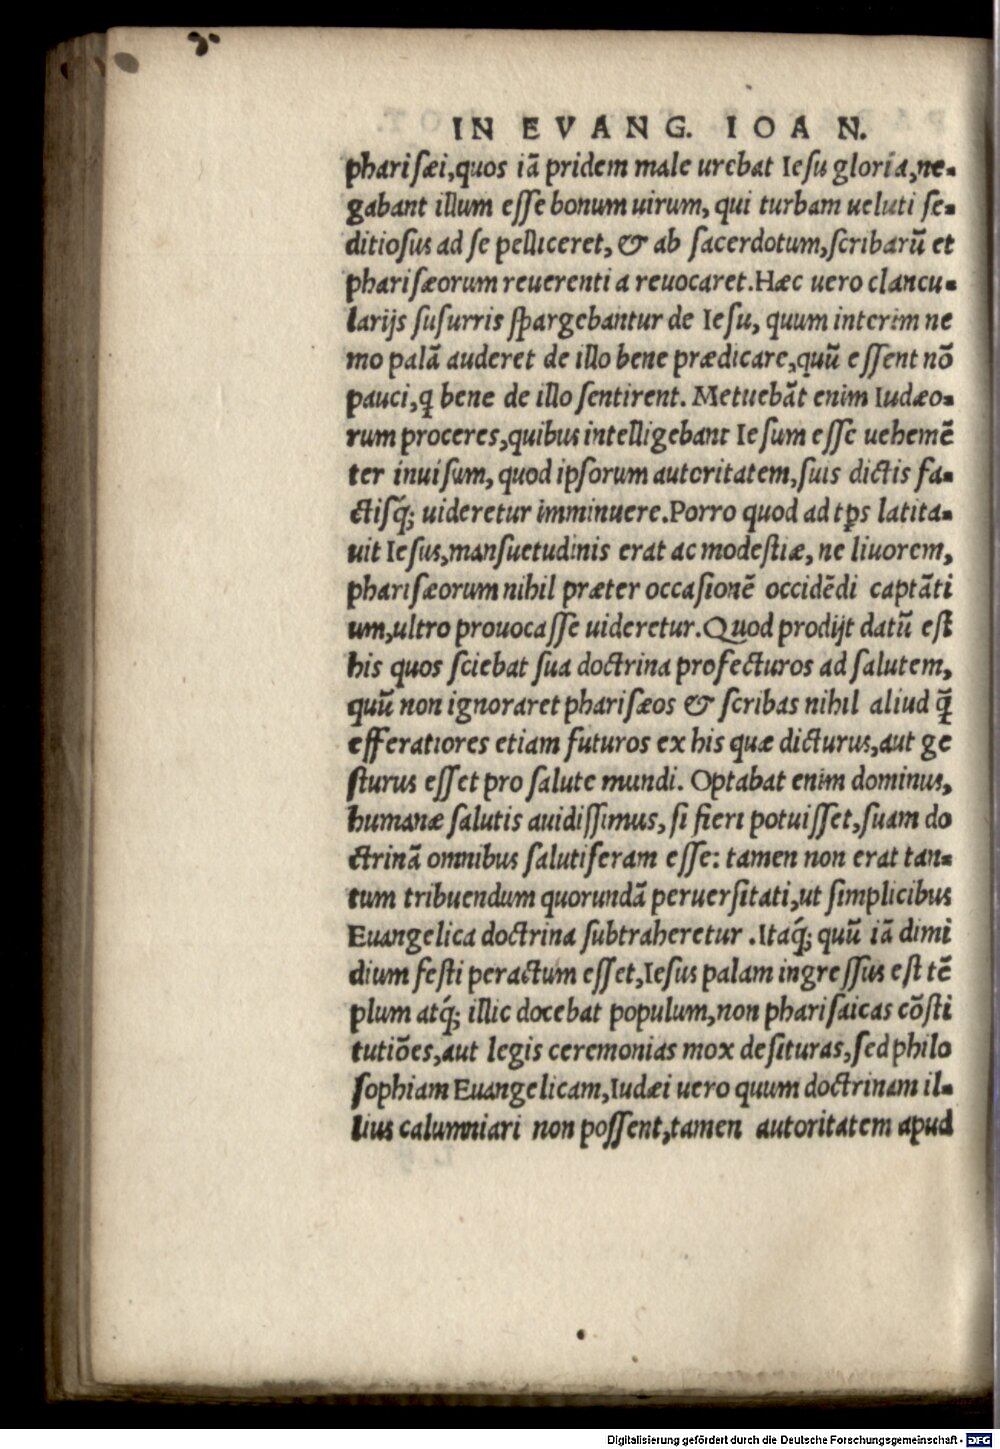 IN EVANG. IOAN.
phariſæi,quos iã pridem male urebat Ieſu gloria,ne-
gabant illum eſſe bonum uirum, qui turbam ueluti ſe-
ditioſus ad ſe pelliceret, & ab ſacerdotum,ſcribarũ et
phariſæorum reuerentia reuocaret.Hæc uero clancu-
larijs ſuſurris ſpargebantur de Ieſu, quum interim ne
mo palã auderet de illo bene prædicare,quũ eſſent nõ
pauci,q̃ bene de illo ſentirent. Metuebãt enim Iudæo-
rum proceres,quibus intelligebant Ieſum eſſe uehemẽ
ter inuiſum, quod ipſorum autoritatem,ſuis dictis fa-
ctiſq́; uideretur imminuere.Porro quod ad tp̃s latita-
uit Ieſus,manſuetudinis erat ac modeſtiæ, ne liuorem,
phariſæorum nihil præter occaſionẽ occidẽdi captãti
um,ultro prouocaſſe uideretur.Quod prodijt datũ eſt
his quos ſciebat ſua doctrina profecturos ad ſalutem,
quũ non ignoraret phariſæos & ſcribas nihil aliud q̃
efferatiores etiam futuros ex his quæ dicturus,aut ge
ſturus eſſet pro ſalute mundi. Optabat enim dominus,
humanæ ſalutis auidiſſimus, ſi fieri potuiſſet,ſuam do
ctrinã omnibus ſalutiferam eſſe: tamen non erat tan-
tum tribuendum quorundã peruerſitati,ut ſimplicibus
Euangelica doctrina ſubtraheretur .Itaq́; quũ iã dimi
dium feſti peractum eſſet,Ieſus palam ingreſſus eſt tẽ
plum atq́; illic docebat populum,non phariſaicas cõſti
tutiões,aut legis ceremonias mox deſituras,ſed philo
ſophiam Euangelicam,Iudæi uero quum doctrinam il-
lius calumniari non poſſent,tamen autoritatem apud
Digitalisierung gefördert durch die Deutsche Forschungsgemeinschaft - DFG